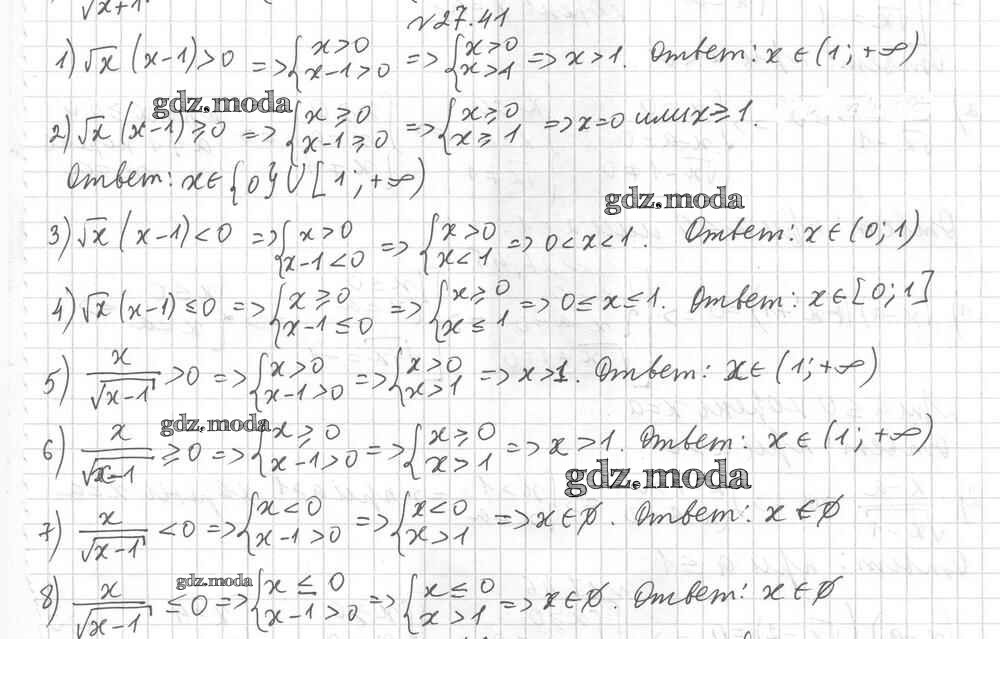 √x+1
№27.41
1) √x (x-1)>0 => { x>0 x-1>0 => { x>0 x>1 => x>1. Ответ: x∈(1;+∞)
gdz.moda
2) √x (x-1)≥0 => { x≥0 x-1≥0 => { x≥0 x≥1 => x=0 или x≥1.
Ответ: x∈{0}∪[1;+∞)
gdz.moda
3) √x (x-1)<0 => { x>0 x-1<0 => { x>0 x<1 => 0<x<1. Ответ: x∈(0;1)
4) √x (x-1)≤0 => { x≥0 x-1≤0 => { x≥0 x≤1 => 0≤x≤1. Ответ: x∈[0;1]
5) x/√x-1 >0 => { x>0 x-1>0 => { x>0 x>1 => x>1. Ответ: x∈(1;+∞)
gdz.moda
6) x/√x-1 ≥0 => { x≥0 x-1>0 => { x≥0 x>1 => x>1. Ответ: x∈(1;+∞)
gdz.moda
7) x/√x-1 <0 => { x<0 x-1>0 => { x<0 x>1 => x∈∅. Ответ: x∈∅
gdz.moda
8) x/√x-1 ≤0 => { x≤0 x-1>0 => { x≤0 x>1 => x∈∅. Ответ: x∈∅